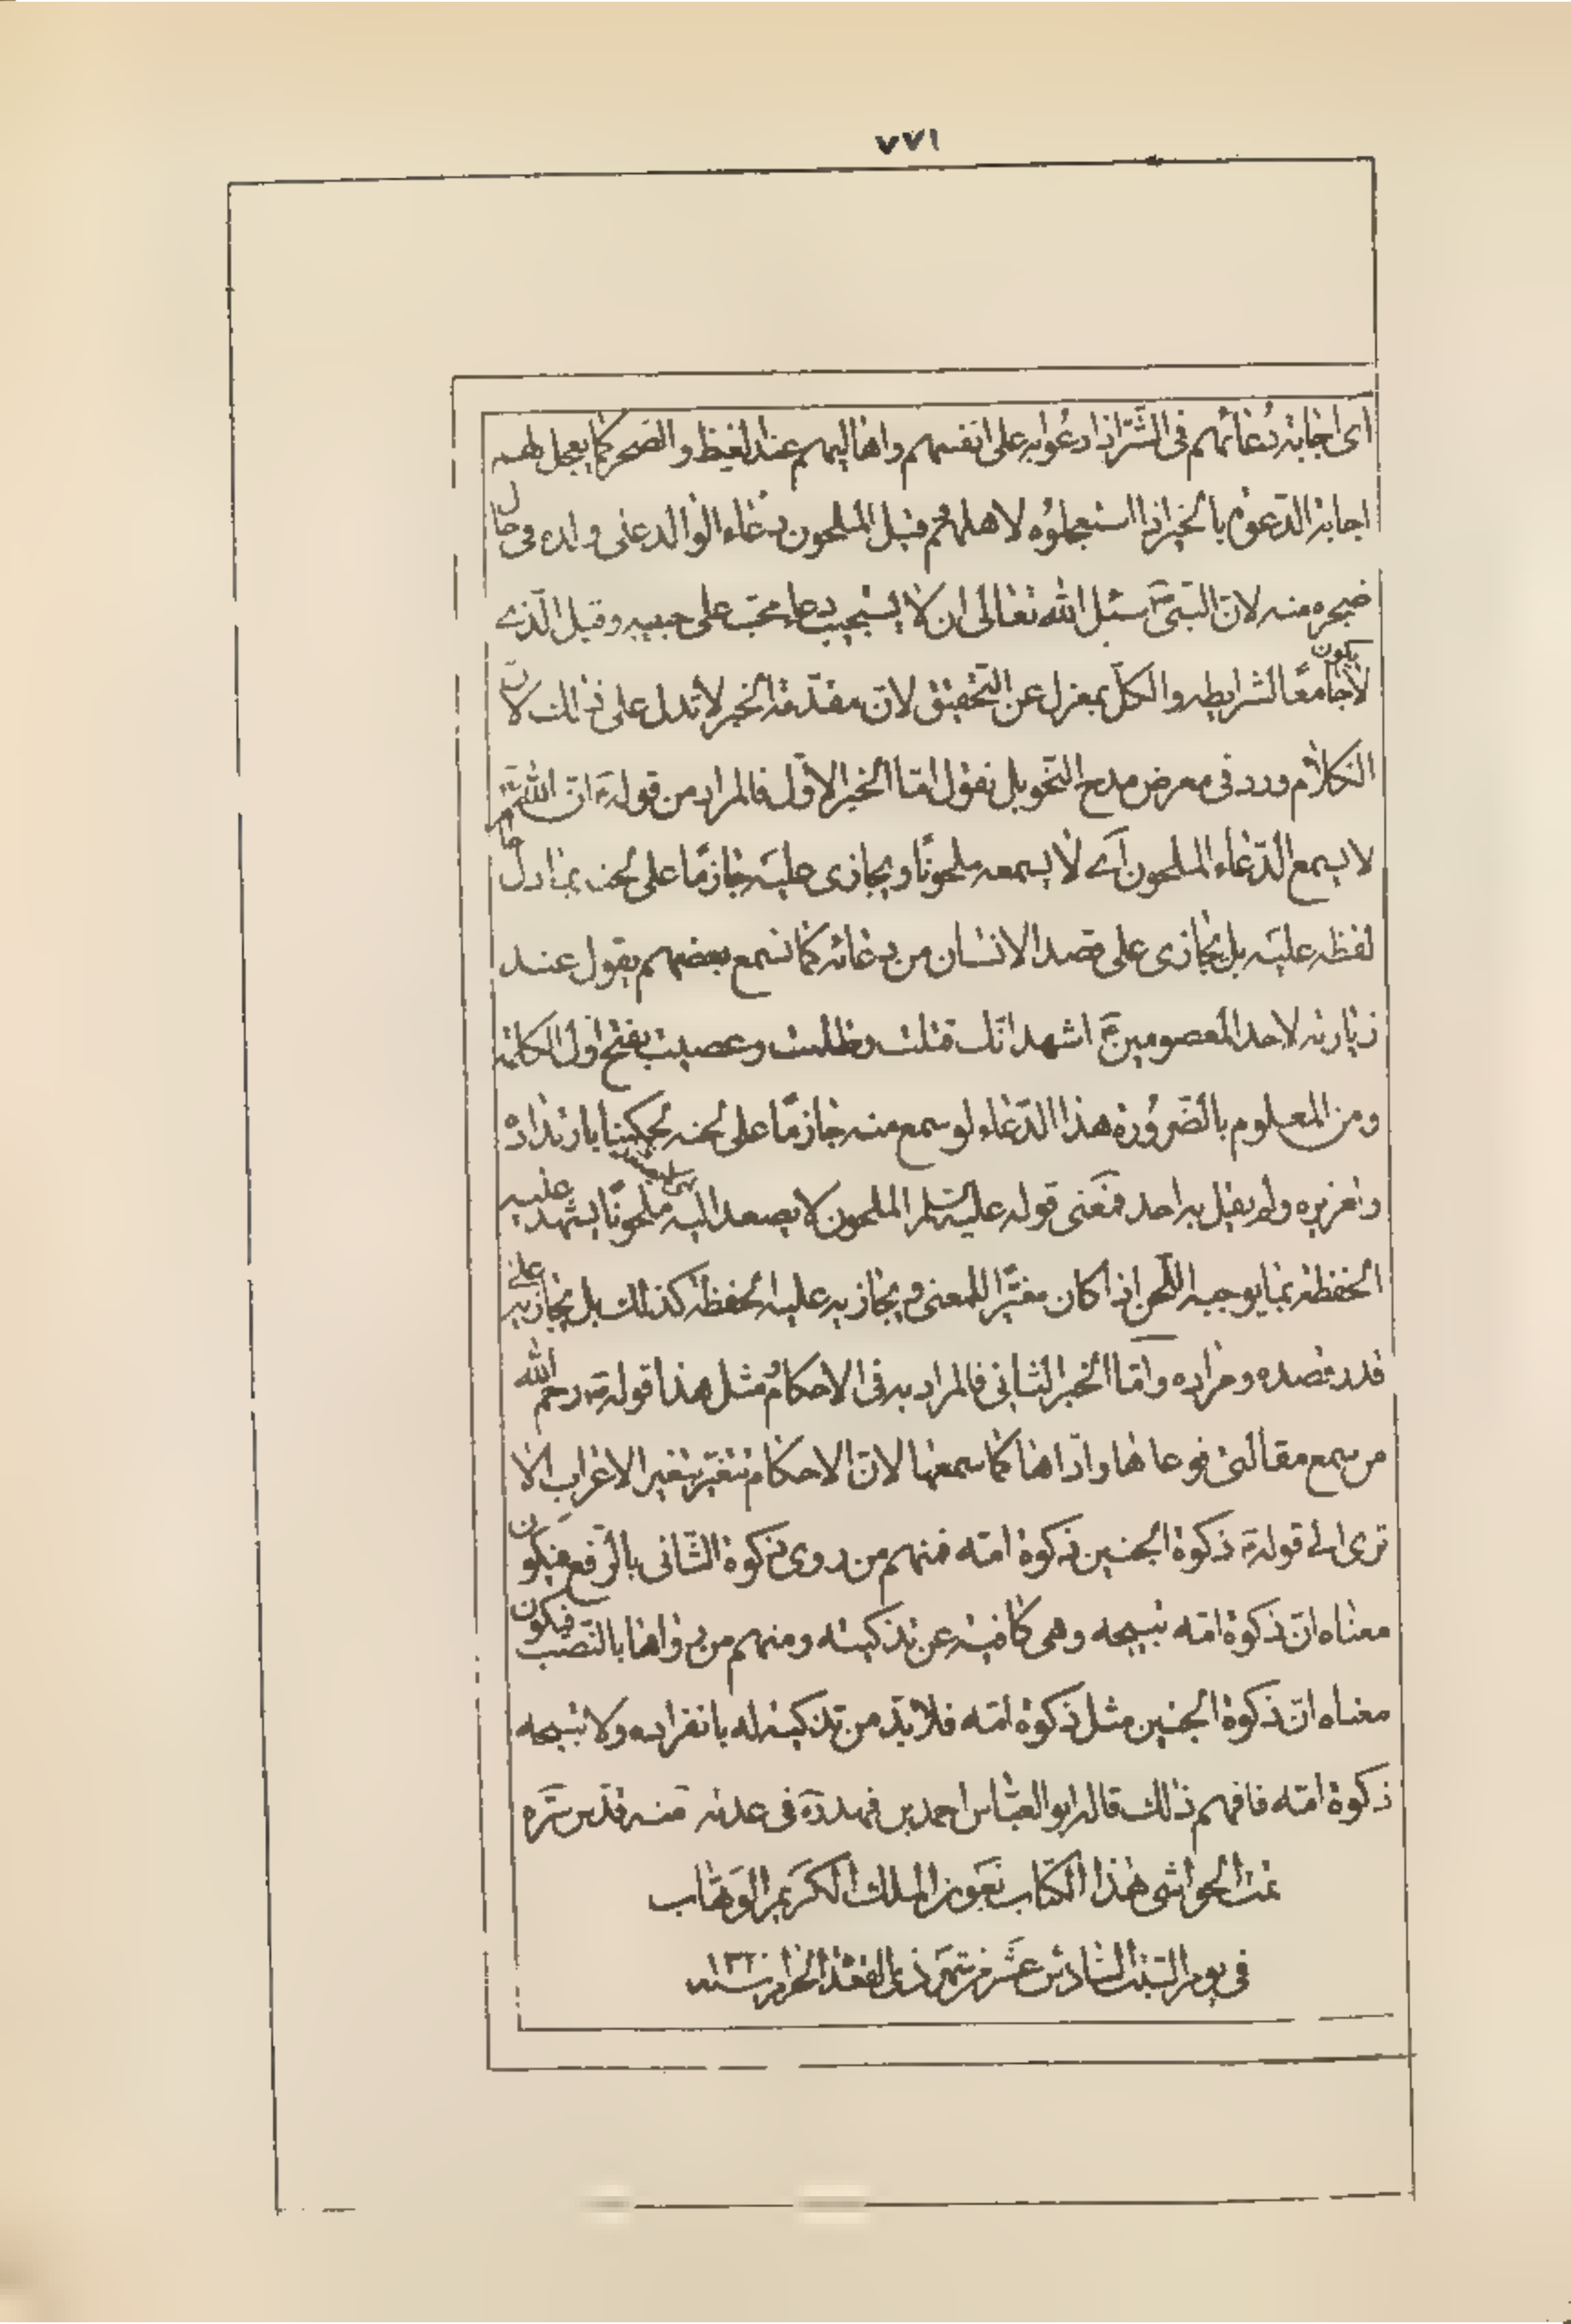 ٧٧١
اى اجابة دعائهم فى الشّرّ اذا دعوا به على انفسهم واهاليهم عند الغيظ والضجر كما يعجل لهم
اجابة الدعوة بالخير اذا استعجلوه لاهلهم قيل الملحون دعاء الوالد على ولده فى حال
ضجره منه لان النبىّ سئل الله تعالى ان لا يستجيب دعاء محبّ على حبيبه وقيل الّذى
لا يكون جامعًا لشرايطه والكلّ بمعزل عن التحقيق لانّ مقدّمة الخبر لا تدل على ذلك لانّ
الكلام ورد فى معرض مدح النحو بل نقول امّا الخبر الاوّل فالمراد من قوله انّ الله
لا يسمع الدّعاء الملحون اى لا يسمعه ملحونًا ويجازى عليه جازمًا على لحنه بما دل
لفظه عليه بل يجازى على قصد الانسان من دعائه كما نسمع بعضهم يقول عند
زيارته لاحد المعصومين اشهد انّك قتلت وظلمت وعصيت بفتح اول الكلمة
ومن المعلوم بالضّرورة هذا الدّعاء لو سمع منه جازمًا على لحنه لحكمنا بارتداده
وتعزيره ولم يقل به احد فمعنى قوله عليه السلم الملحون لا يصعد اليه ملحونًا يشهد عليه
الحفظة بما يوجبه اللّحن اذا كان مغيّرا للمعنى ويجازيه عليه الحفظة كذلك بل يجازيه على
قدر قصده ومراده وامّا الخبر الثانى فالمراد به فى الاحكام مثل هذا قوله رحم الله
من سمع مقالتى فوعاها وادّاها كما سمعها لانّ الاحكام تتغيّر بتغير الاعراب الا
ترى الى قوله ذكوة الجنين ذكوة امّه فمنهم من روى ذكوة الثّانى بالرّفع فيكون
معناه انّ ذكوة امّه تبيحه وهى كافية عن تذكيته ومنهم من رواها بالنّصب فيكون
معناه انّ ذكوة الجنين مثل ذكوة امّه فلا بدّ من تذكية له بانفراده ولا تبيحه
ذكوة امّه فافهم ذلك قاله ابو العبّاس احمد بن فهد ره فى عدته منه قدس سرّه
تمت الحواشى هذا الكتاب بعون الملك الكريم الوهّاب
فى يوم السبت السّادس عشر من شهر ذى القعدة الحرام سنة ١٣٢٠